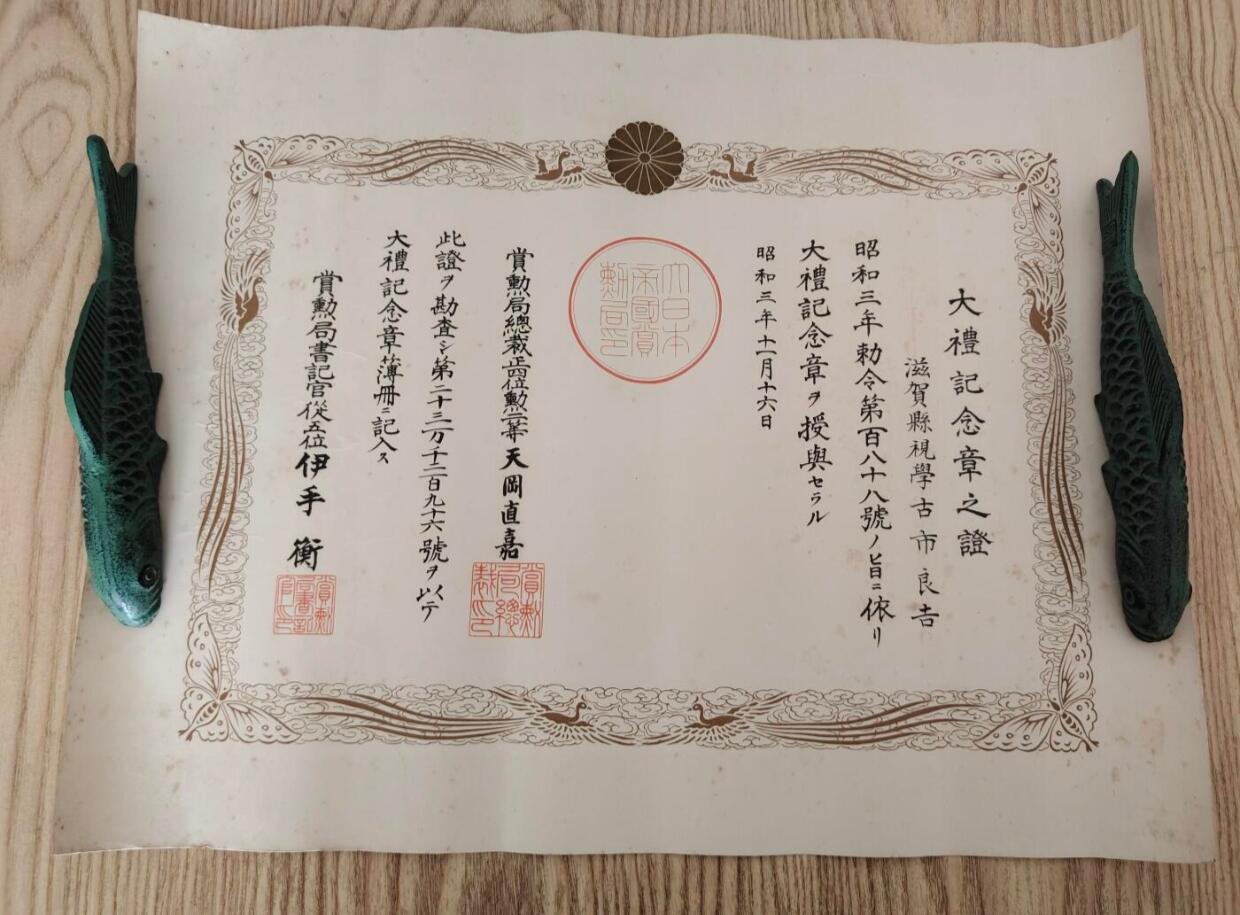 大禮記念章之證
滋賀縣視學古市良吉
昭和三年勅令第百八十八號ノ旨ニ依リ
大禮記念章ヲ授與セラル
昭和三年十一月十六日
大日本
帝國賞
勲局印
賞勲局總裁正四位勲二等天岡直嘉
賞勲
局總
裁印
此證ヲ勘査シ第二十三万千二百九十六號ヲ以テ
大禮記念章簿冊ニ記入ス
賞勲局書記官從五位伊手衡
賞勲
局書記
官印